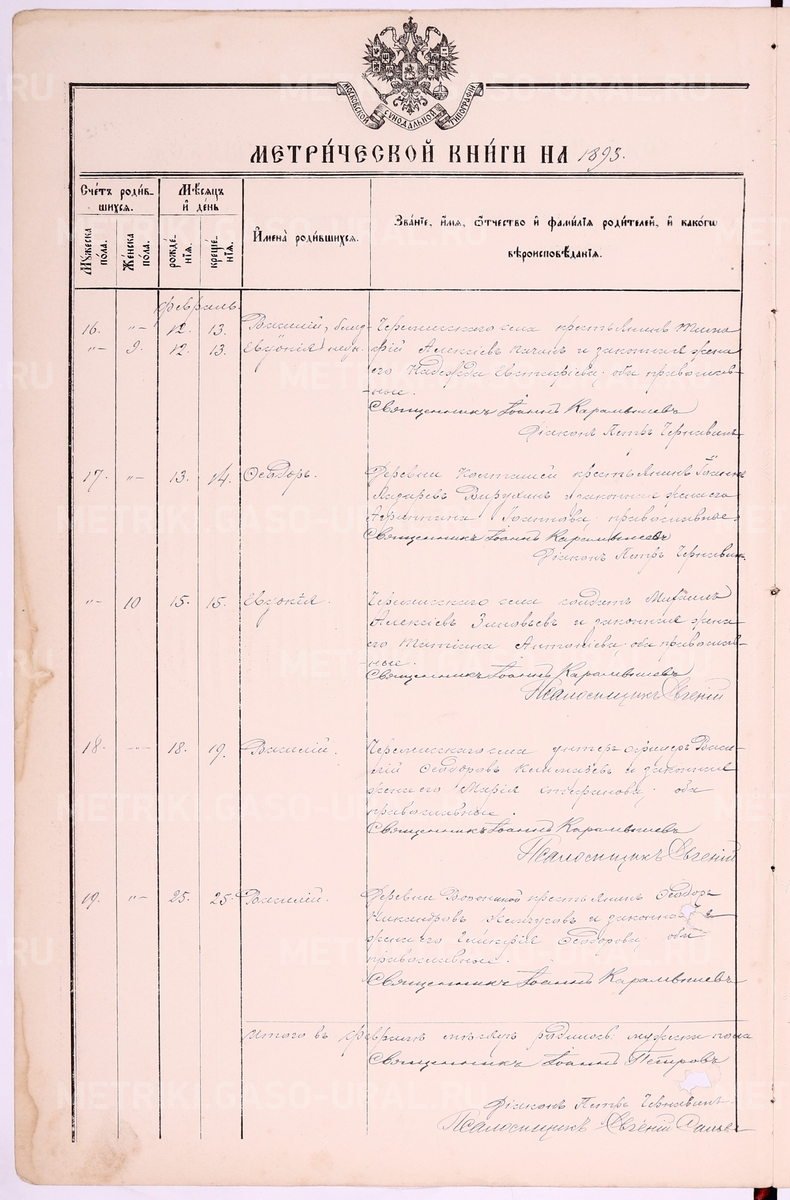 МОСКОВСКОЙ СѴНОДАЛЬНОЙ ТИПОГРАФІИ
МЕТРИЧЕСКОЙ КНИГИ НА 1895.
Счетъ родив-
шихся.
Мужеска
пола.
Женска
пола.
Мѣсяцъ
и день
рожде-
нія.
креще-
нія.
Имена родившихся.
Званіе, имя, отчество и фамилія родителей, и какогѡ
вѣроисповѣданія.
Февраль
16. "— 12. 13. Василій, близ- Черемисскаго села крестьянинъ
"— 9. 12. 13. Евдокія Алексіевъ и законная жена
его Надежда Евстафіева, оба православ-
ные.
Священникъ Іоаннъ Карамышевъ
Діаконъ Петръ
17. "— 13. 14. Ѳеодоръ. Деревни крестьянинъ Іоаннъ
Лазаревъ и законная жена его
Іоаннова православные.
Священникъ Іоаннъ Карамышевъ
Діаконъ Петръ
"— 10 15. 15. Евдокія. Черемисскаго села солдатъ Михаилъ
Алексіевъ и законная жена
его Татіана Антоніева оба православ-
ные.
Священникъ Іоаннъ Карамышевъ
Псаломщикъ Евгеній
18. — 18. 19. Василій. Черемисскаго села унтеръ офицеръ Васи-
лій Ѳеодоровъ и законная
жена его Марія Стефанова, оба
православные.
Священникъ Іоаннъ Карамышевъ
Псаломщикъ Евгеній
19. "— 25. 25. Василій. Деревни крестьянинъ Ѳеодоръ
Никандровъ и законная
жена его Гликерія Ѳеодорова, оба
православные.
Священникъ Іоаннъ Карамышевъ
Итого въ Февралѣ мѣсяцѣ родилось: мужеска пола
Священникъ Іоаннъ Петровъ
Діаконъ Петръ
Псаломщикъ Евгеній
METRIKI.GASO-URAL.RU